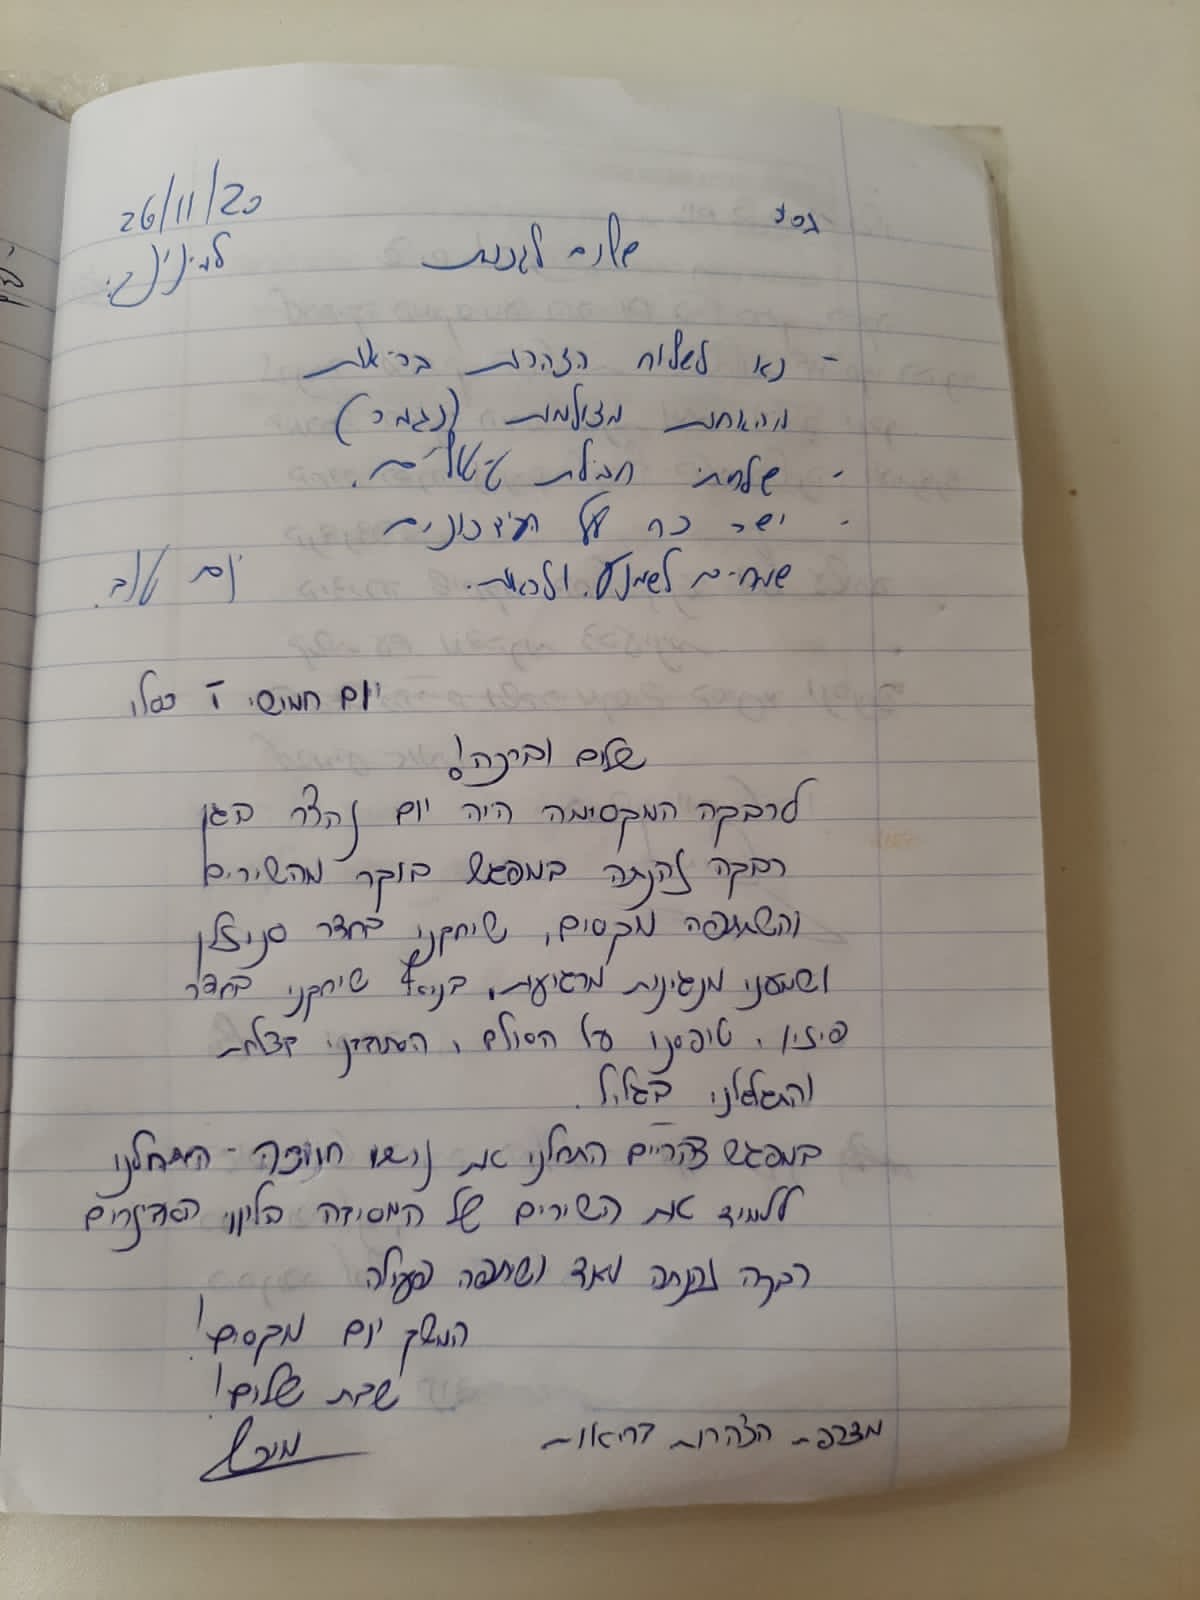 בס"ד
26/11/20
שלום לגננות
- נא לשלוח הצהרות בריאות
מהאחות מצולמות (נגמר)
- שלחתי חבילת טיטולים.
- ישר כח על העידכונים
שמחים לשמוע ולראות. יום טוב.
יום חמישי י' כסלו
שלום וברכה!
לרבקה המקסימה היה יום נהדר בגן
רבקה נהנתה במפגש בוקר מהשירים
והשתתפה מקסים, שיחקנו בחדר סנוזלן
ושמענו מנגינות מרגיעות, שיחקנו בחדר
פיזיו, טיפסנו על הסולם, הסתובבנו בצלחת
והתגלגלנו בגליל.
במפגש צהריים התחלנו את נושא חנוכה - התחלנו
ללמוד את השירים של המסיבה בליווי הסדינרים
רבקה נהנתה מאד ושיתפה פעולה
המשך יום מקסים!
שבת שלום!
מצרפת הצהרות בריאות